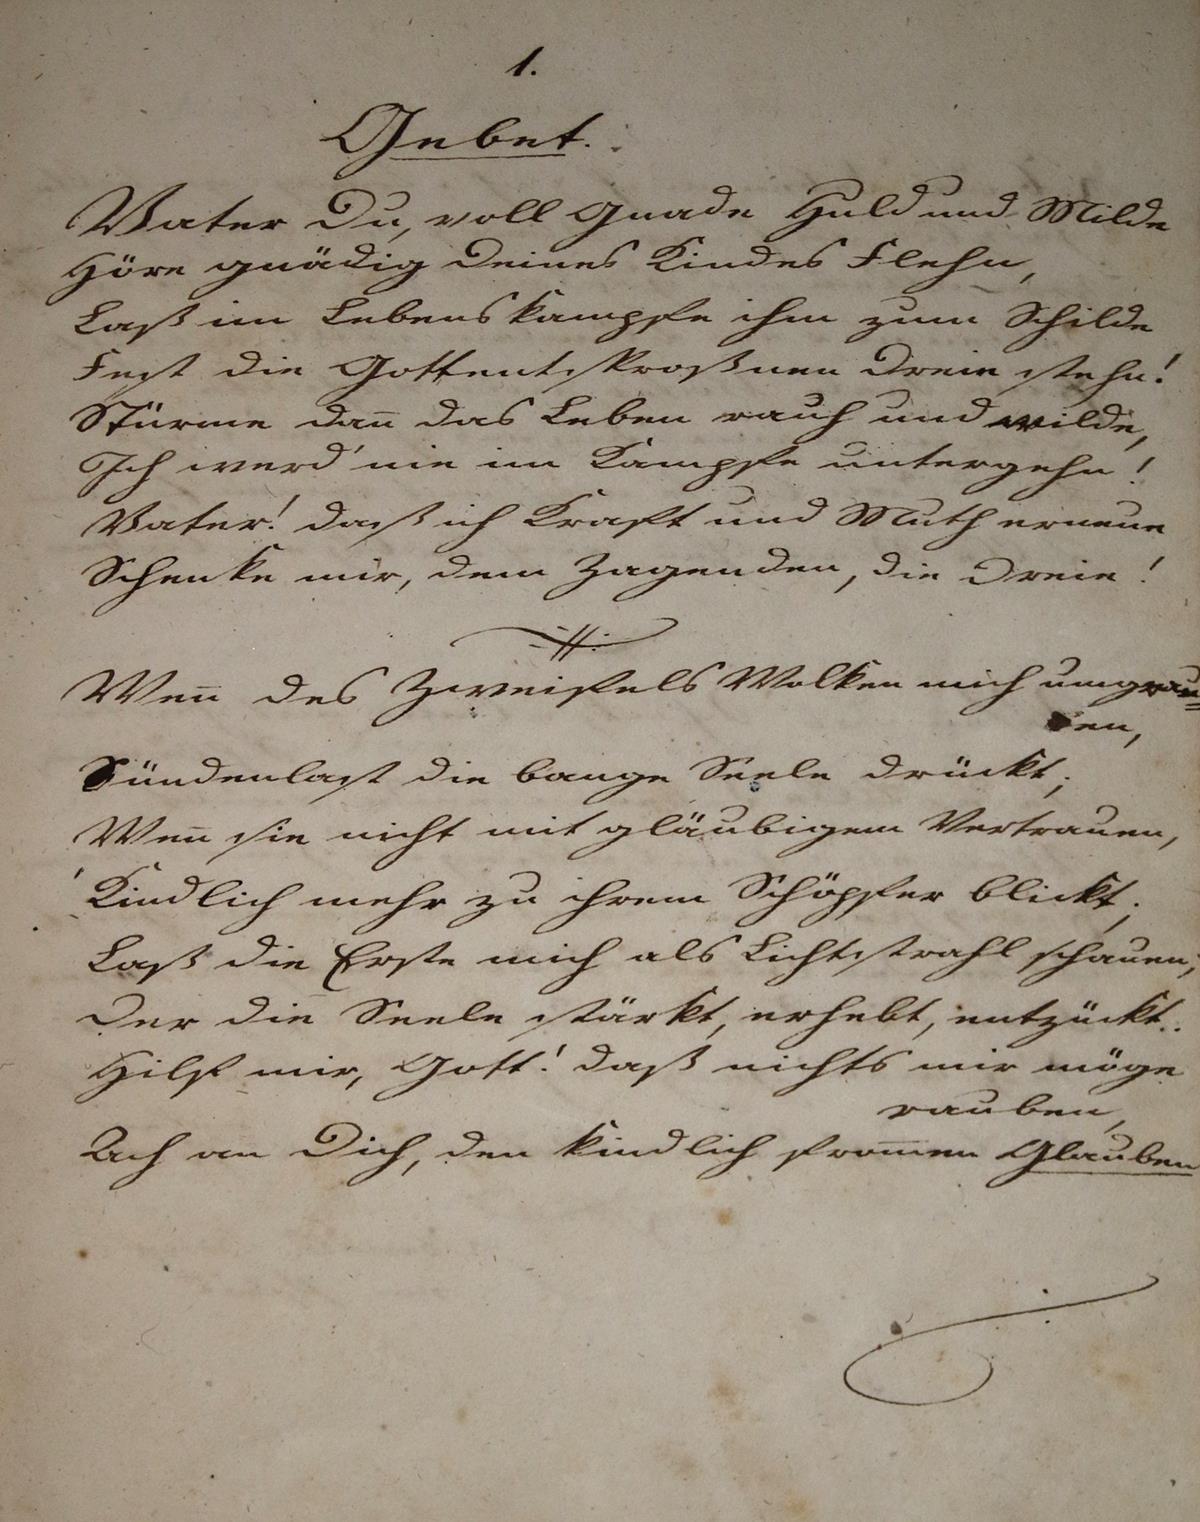 1.
Gebet.
Vater Du, voll Gnade Huld und Milde
Höre gnädig Deines Kindes Flehn,
Laß im Lebenskampfe ihm zum Schilde
Fest die Gottentsproßnen Dreie stehn!
Stürme dan̅ das Leben rauh und wilde,
Ich werd' nie im Kampfe untergehn!
Vater! daß ich Kraft und Muth erneue
Schenke mir, dem Zagenden, die Dreie!
Wen̅ des Zweifels Wolken mich umgrau=
en,
Sündenlast die bange Seele drückt;
Wen̅ sie nicht mit gläubigem Vertrauen,
Kindlich mehr zu ihrem Schöpfer blickt;
Laß die Erste mich als Lichtstrahl schauen,
Der die Seele stärkt, erhebt, entzückt.
Hilf mir, Gott! daß nichts mir möge
rauben,
Ach an Dich, den kindlich from̅en Glauben